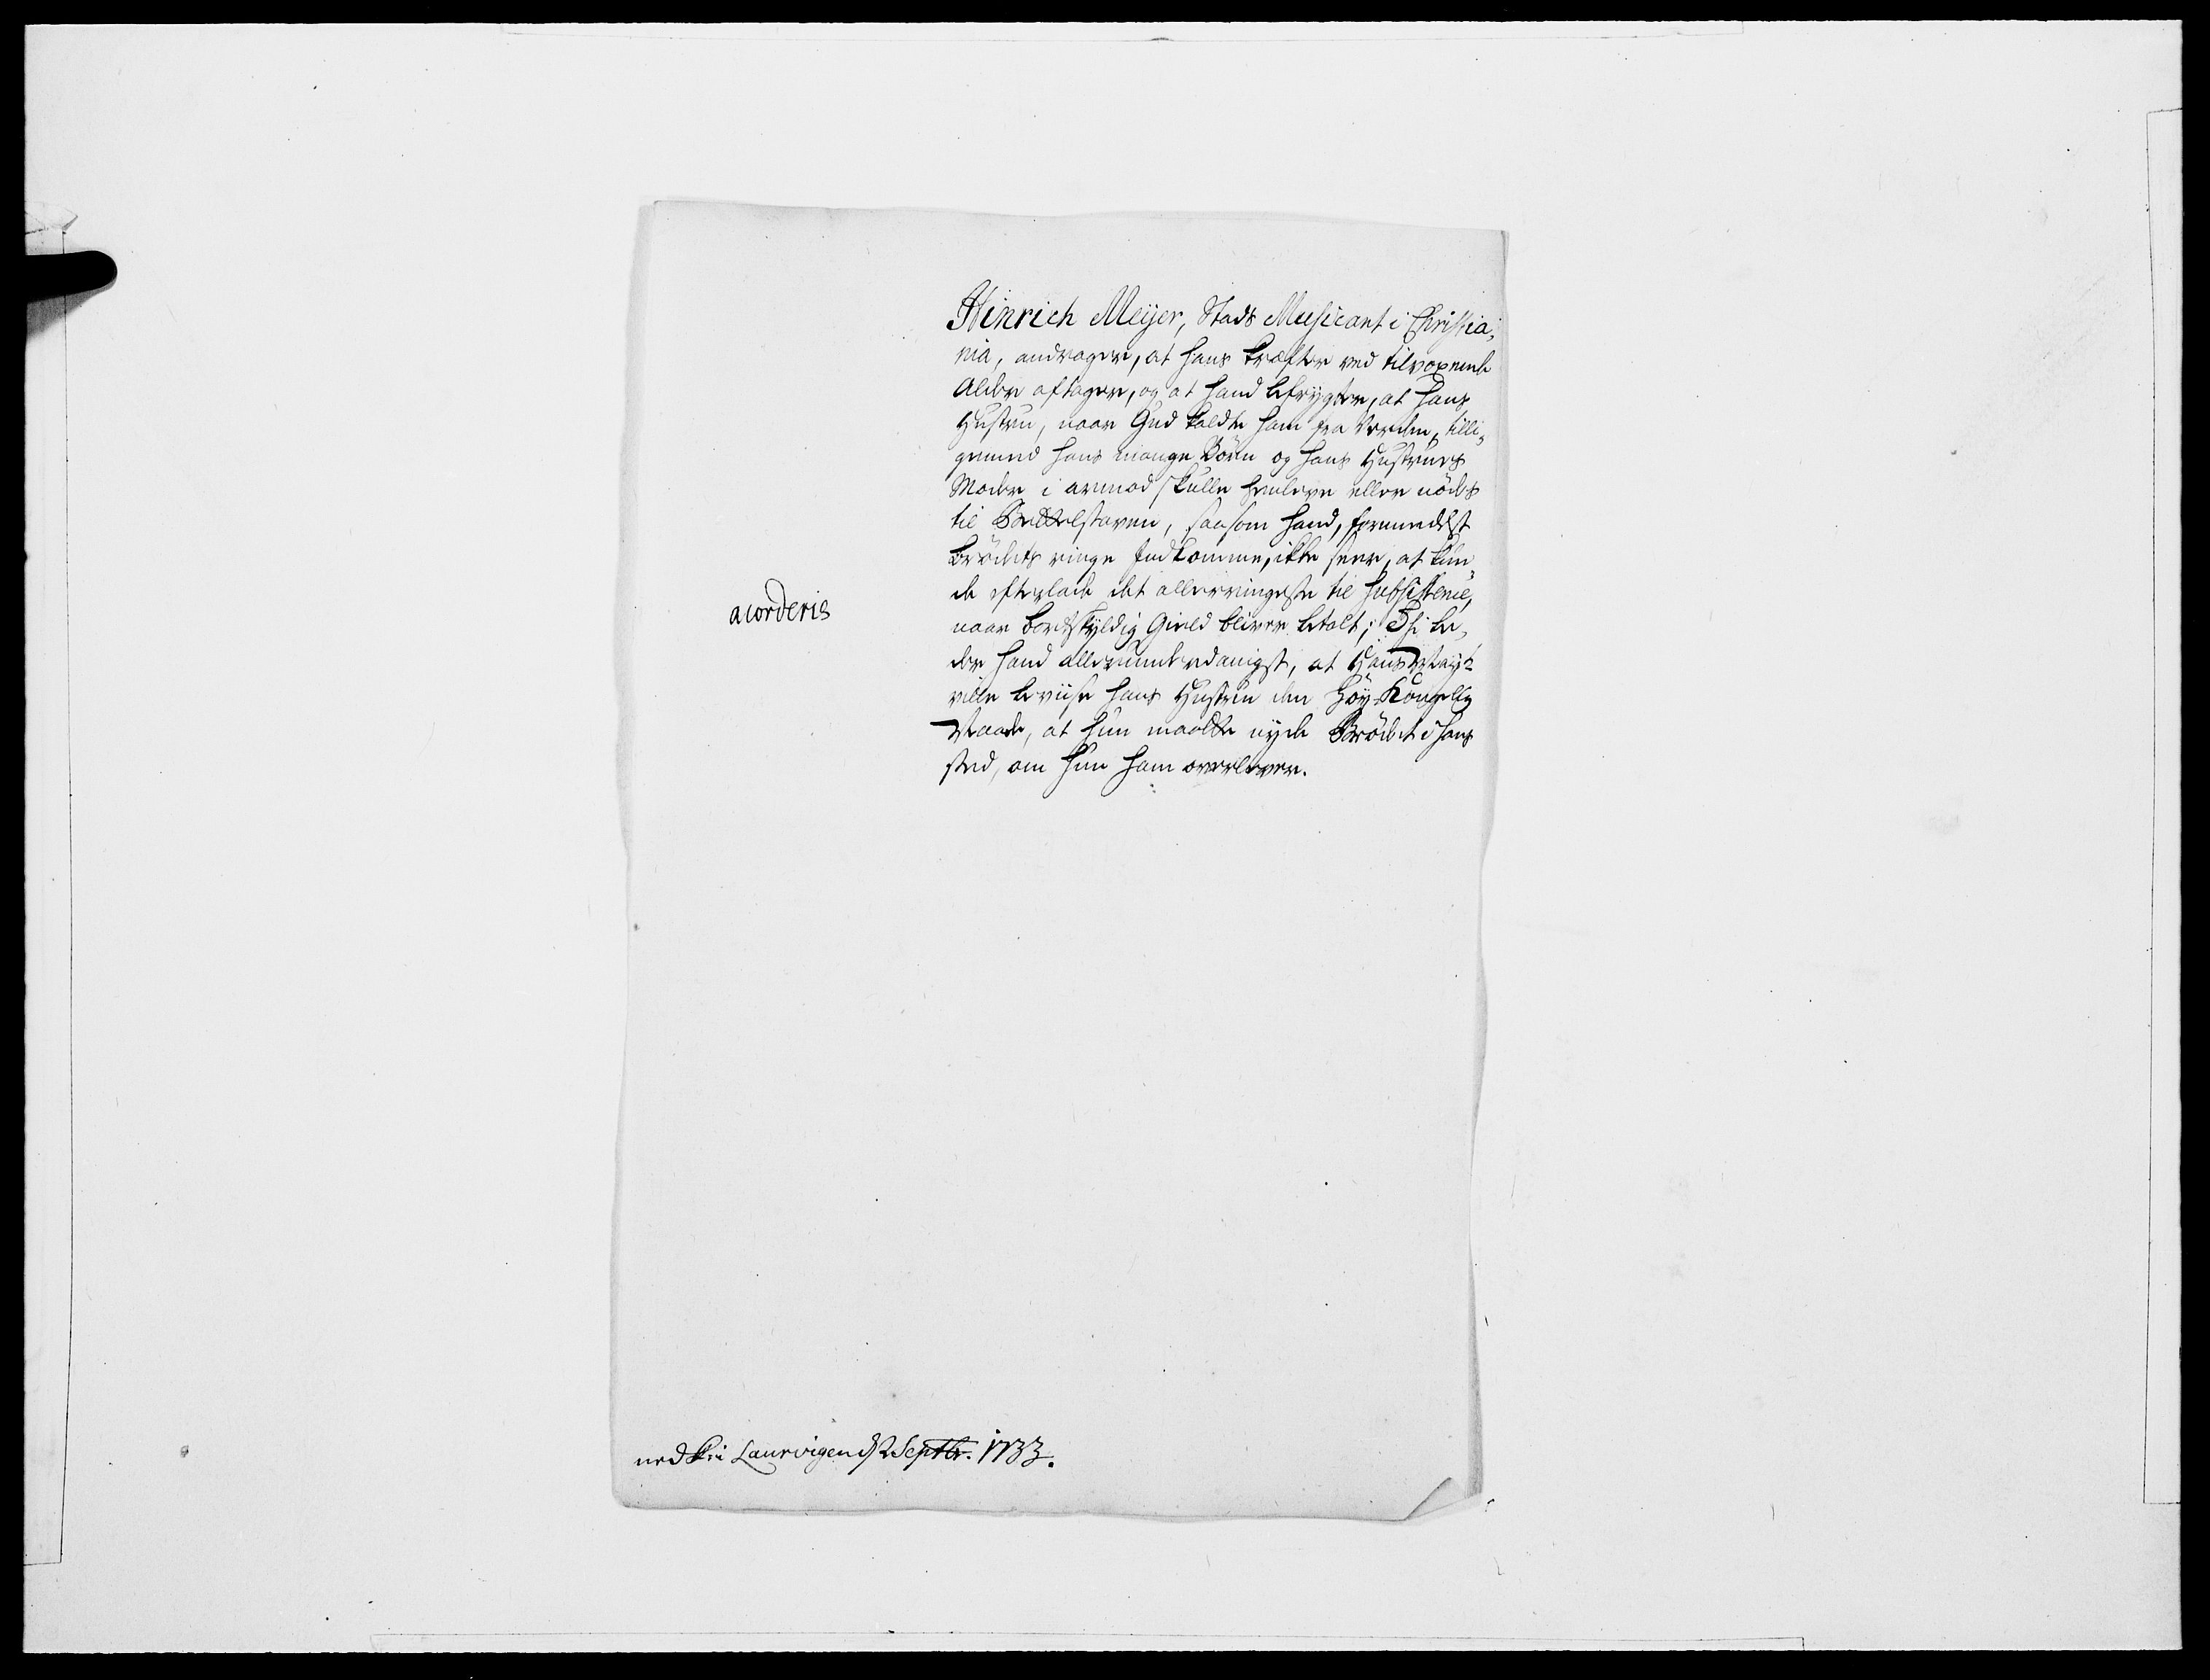 Hinrich Meijer, Stads Musicant i Christia„
nia, andrager, at hans kræfter ved tilvoxende
Alder aftager, og at hand befrygter, at hans
Hustru, naar Gud kaldte ham fra Verden, tilli„
gemed hans mange Börn og hans Hustrues
Moder i armod skulle henleve eller nödes
til Bettelstaven, saasom hand, formedelst
brödets ringe Indkomme, ikke seer, at kun„
de efterlade det allerringeste til subsistence,
naar bortskyldig Gield bliver betalt; Thi be„
der hand allerunderdanigst, at Hans Mayt
ville beviise hans Hustru den höy Kongelig
Naade, at hun maatte nyde Brödet i hans
sted, om hun ham overlever.
acorderis
Laurvigen d 2 Septbr. 1733.